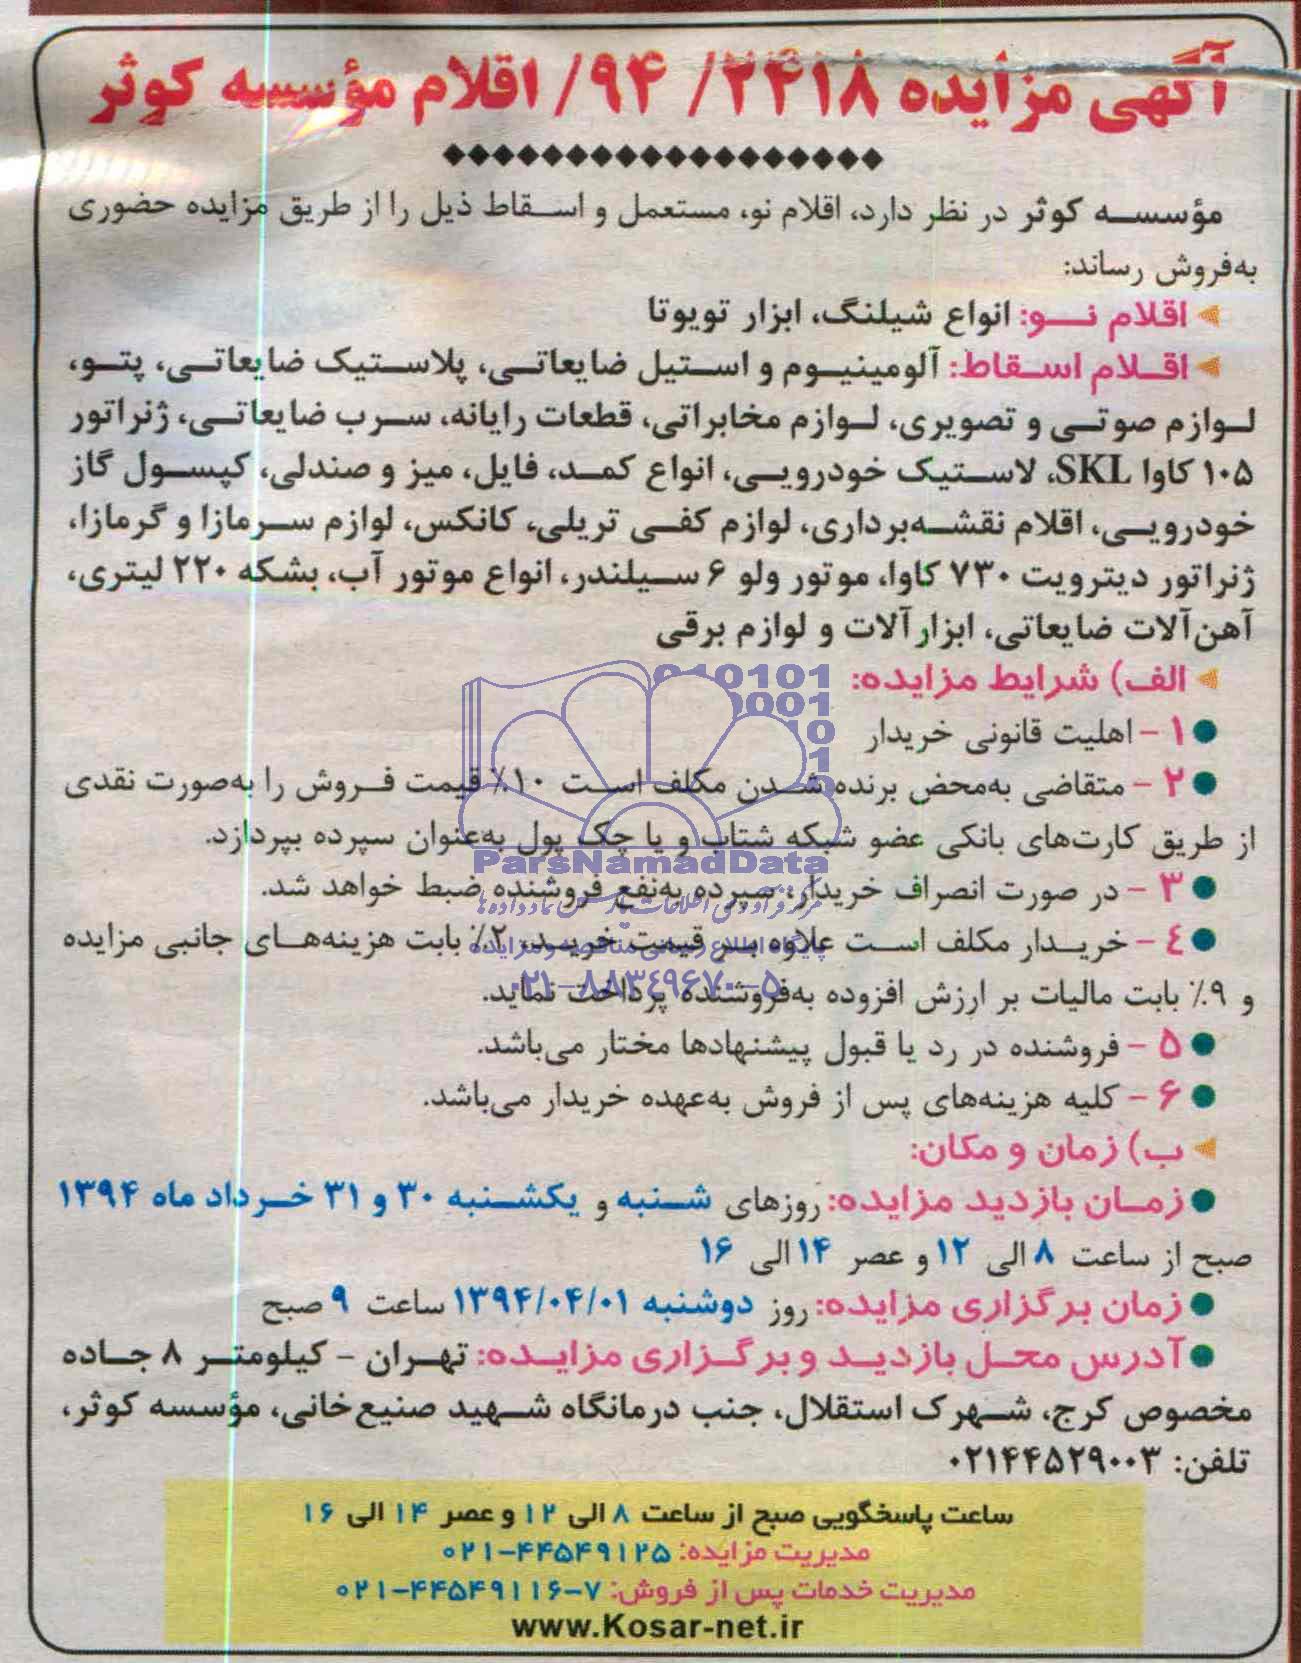 آگهی مزایده ۲۴۱۸/ ۹۴/ اقلام مؤسسه کوثر
مؤسسه کوثر در نظر دارد، اقلام نو، مستعمل و اسقاط ذیل را از طریق مزایده حضوری
به‌فروش رساند:
اقلام نو: انواع شیلنگ، ابزار تویوتا
اقلام اسقاط: آلومینیوم و استیل ضایعاتی، پلاستیک ضایعاتی، پتو،
لوازم صوتی و تصویری، لوازم مخابراتی، قطعات رایانه، سرب ضایعاتی، ژنراتور
۱۰۵ کاوا SKL، لاستیک خودرویی، انواع کمد، فایل، میز و صندلی، کپسول گاز
خودرویی، اقلام نقشه‌برداری، لوازم کفی تریلی، کانکس، لوازم سرمازا و گرمازا،
ژنراتور دیترویت ۷۳۰ کاوا، موتور ولو ۶ سیلندر، انواع موتور آب، بشکه ۲۲۰ لیتری،
آهن‌آلات ضایعاتی، ابزارآلات و لوازم برقی
الف) شرایط مزایده:
۱ - اهلیت قانونی خریدار
۲ - متقاضی به‌محض برنده شدن مکلف است ۱۰٪ قیمت فروش را به‌صورت نقدی
از طریق کارت‌های بانکی عضو شبکه شتاب و یا چک پول به‌عنوان سپرده بپردازد.
ParsNamadData
۳ - در صورت انصراف خریدار، سپرده به‌نفع فروشنده ضبط خواهد شد.
۴ - خریدار مکلف است علاوه بر قیمت خرید، ۲٪ بابت هزینه‌های جانبی مزایده
پایگاه اطلاع رسانی مناقصه و مزایده
و ۹٪ بابت مالیات بر ارزش افزوده به‌فروشنده پرداخت نماید.
۰۲۱-۸۸۳۴۹۶۷۰-۵
۵ - فروشنده در رد یا قبول پیشنهادها مختار می‌باشد.
۶ - کلیه هزینه‌های پس از فروش به‌عهده خریدار می‌باشد.
ب) زمان و مکان:
زمان بازدید مزایده: روزهای شنبه و یکشنبه ۳۰ و ۳۱ خرداد ماه ۱۳۹۴
صبح از ساعت ۸ الی ۱۲ و عصر ۱۴ الی ۱۶
زمان برگزاری مزایده: روز دوشنبه ۱۳۹۴/۰۴/۰۱ ساعت ۹ صبح
آدرس محل بازدید و برگزاری مزایده: تهران - کیلومتر ۸ جاده
مخصوص کرج، شهرک استقلال، جنب درمانگاه شهید صنیع‌خانی، مؤسسه کوثر،
تلفن: ۰۲۱۴۴۵۲۹۰۰۳
ساعت پاسخگویی صبح از ساعت ۸ الی ۱۲ و عصر ۱۴ الی ۱۶
مدیریت مزایده: ۰۲۱-۴۴۵۴۹۱۲۵
مدیریت خدمات پس از فروش: ۰۲۱-۴۴۵۴۹۱۱۶-۷
www.Kosar-net.ir